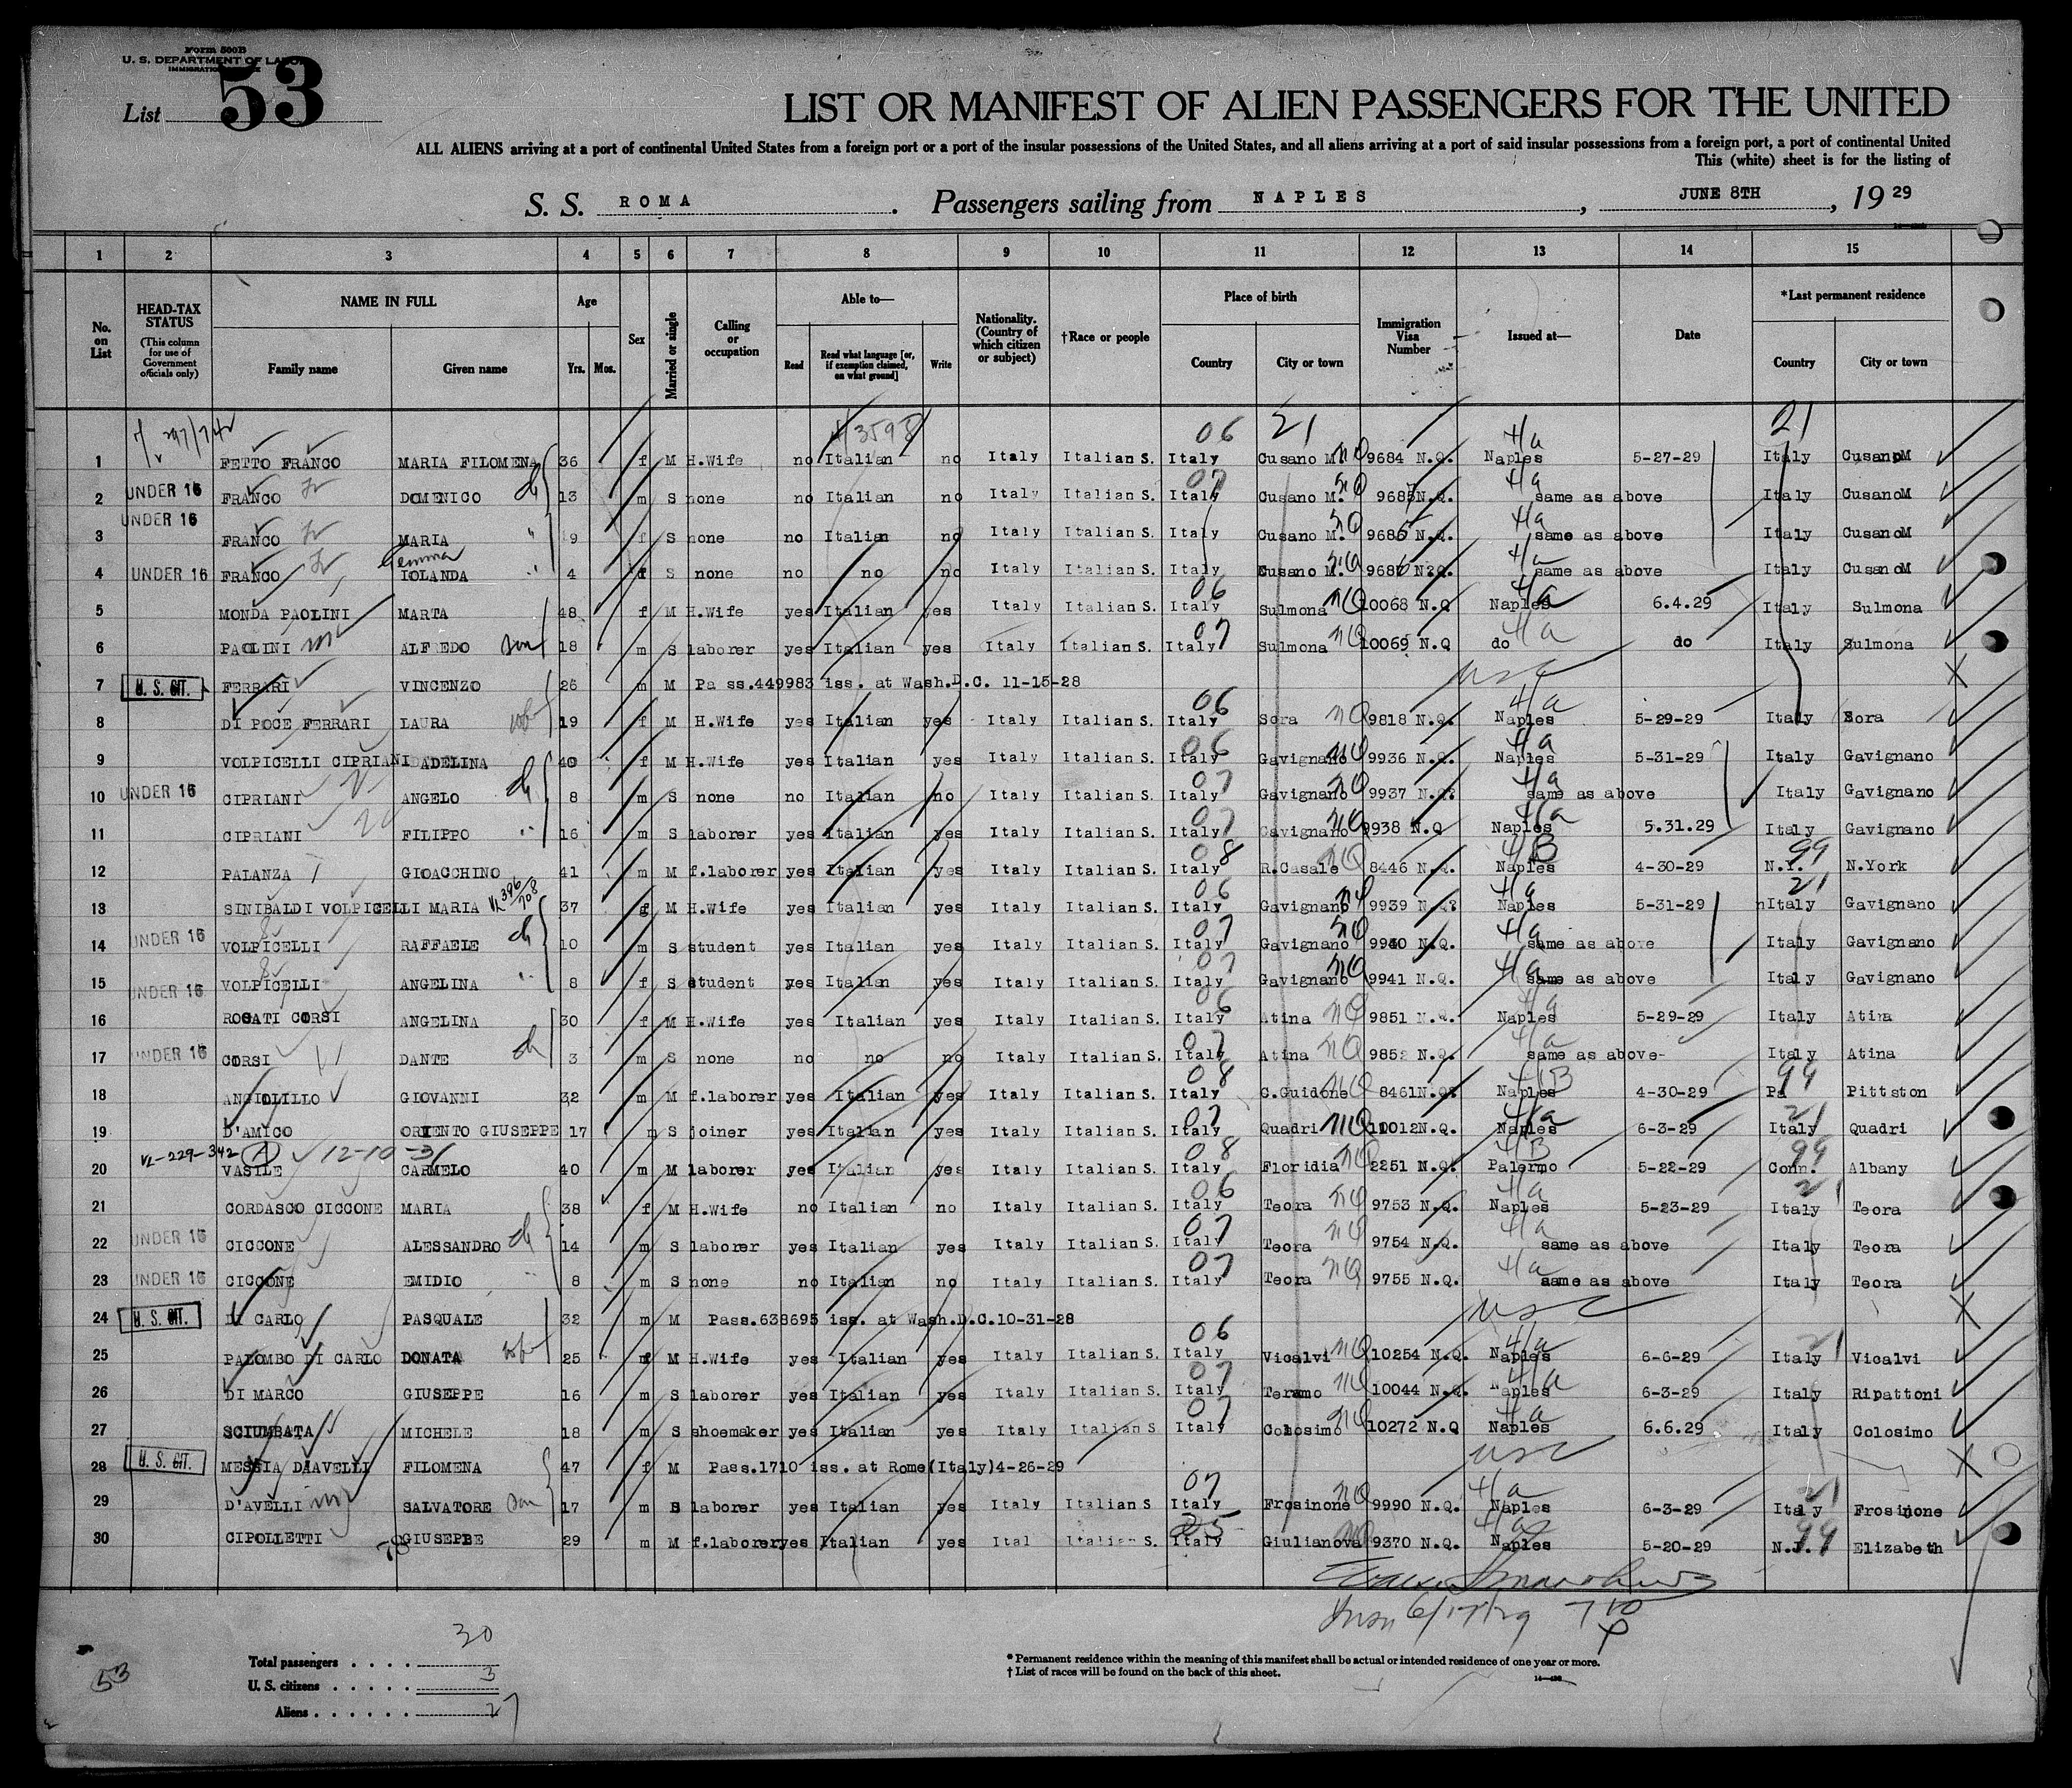 Form 500B
U. S. DEPARTMENT OF LABOR
IMMIGRATION
List 53
LIST OR MANIFEST OF ALIEN PASSENGERS FOR THE UNITED
ALL ALIENS arriving at a port of continental United States from a foreign port or a port of the insular possessions of the United States, and all aliens arriving at a port of said insular possessions from a foreign port, a port of continental United
This (white) sheet is for the listing of
S. S. ROMA . Passengers sailing from NAPLES , JUNE 8TH , 19 29
1 2 3 4 5 6 7 8 9 10 11 12 13 14 15
No. on List
HEAD-TAX STATUS (This column for use of Government officials only)
NAME IN FULL
Family name Given name
Age
Yrs. Mos.
Sex
Married or single
Calling or occupation
Able to—
Read Read what language [or, if exemption claimed, on what ground] Write
Nationality. (Country of which citizen or subject)
†Race or people
Place of birth
Country City or town
Immigration Visa Number
Issued at—
Date
*Last permanent residence
Country City or town
06 21 4/a 21
1 FETTO FRANCO MARIA FILOMENA 36 f M H.Wife no Italian no Italy Italian S. Italy Cusano M. NQ 9684 N.Q. Naples 5-27-29 Italy CusanoM
2 UNDER 16 FRANCO DOMENICO ch 13 m S none no Italian no Italy Italian S. Italy 07 Cusano M. NQ 9685 N.Q. 4/a same as above Italy CusanoM
3 UNDER 16 FRANCO MARIA " 9 f S none no Italian no Italy Italian S. Italy Cusano M. NQ 9686 N.Q. 4/a same as above Italy CusanoM
4 UNDER 16 FRANCO Gemma IOLANDA " 4 f S none no no no Italy Italian S. Italy Cusano M. NQ 9687 N.Q. 4/a same as above Italy CusanoM
5 MONDA PAOLINI MARTA 48 f M H.Wife yes Italian yes Italy Italian S. Italy 06 Sulmona NQ 10068 N.Q Naples 4/a 6.4.29 Italy Sulmona
6 PAOLINI ALFREDO son 18 m S laborer yes Italian yes Italy Italian S. Italy 07 Sulmona NQ 10069 N.Q do 4/a do Italy Sulmona
7 U. S. CIT. FERRARI VINCENZO 26 m M Pass.449983 iss. at Wash.D.C. 11-15-28 USC X
8 DI POCE FERRARI LAURA wife 19 f M H.Wife yes Italian yes Italy Italian S. Italy 06 Sora NQ 9818 N.Q. Naples 4/a 5-29-29 Italy Sora
9 VOLPICELLI CIPRIANI ADELINA 40 f M H.Wife yes Italian yes Italy Italian S. Italy 06 Gavignano NQ 9936 N.Q. Naples 4/a 5-31-29 Italy Gavignano
10 UNDER 16 CIPRIANI ANGELO ch 8 m S none no Italian no Italy Italian S. Italy 07 Gavignano NQ 9937 N.Q. 4/a same as above Italy Gavignano
11 CIPRIANI FILIPPO " 16 m S laborer yes Italian yes Italy Italian S. Italy 07 Gavignano NQ 9938 N.Q Naples 4/a 5.31.29 Italy Gavignano
12 PALANZA GIOACCHINO 41 m M f.laborer yes Italian yes Italy Italian S. Italy 08 R.Casale NQ 8446 N.Q. Naples 4/B 4-30-29 N.Y. 99 N.York
13 SINIBALDI VOLPICELLI MARIA 37 f M H.Wife yes Italian yes Italy Italian S. Italy 06 Gavignano NQ 9939 N.Q. Naples 4/a 5-31-29 Italy 21 Gavignano
14 UNDER 16 VOLPICELLI RAFFAELE ch 10 m S student yes Italian yes Italy Italian S. Italy 07 Gavignano NQ 9940 N.Q. 4/a same as above Italy Gavignano
15 UNDER 16 VOLPICELLI ANGELINA " 8 f S student yes Italian yes Italy Italian S. Italy 07 Gavignano NQ 9941 N.Q. 4/a same as above Italy Gavignano
16 ROSATI CORSI ANGELINA 30 f M H.Wife yes Italian yes Italy Italian S. Italy 06 Atina NQ 9851 N.Q. Naples 4/a 5-29-29 Italy Atina
17 UNDER 16 CORSI DANTE ch 3 m S none no no no Italy Italian S. Italy 07 Atina NQ 9852 N.Q. 4/a same as above Italy Atina
18 ANGIOLILLO GIOVANNI 32 m M f.laborer yes Italian yes Italy Italian S. Italy 08 C.Guidone NQ 8461 N.Q. Naples 4/B 4-30-29 Pa 99 Pittston
19 D'AMICO ORIENTO GIUSEPPE 17 m S joiner yes Italian yes Italy Italian S. Italy 07 Quadri NQ 10012 N.Q. Naples 4/a 6-3-29 Italy 21 Quadri
VL-229-342 (A) 12-10-31
20 VASILE CARMELO 40 m M laborer yes Italian yes Italy Italian S. Italy 08 Floridia NQ 2251 N.Q. Palermo 4/B 5-22-29 Conn. 99 Albany
21 CORDASCO CICCONE MARIA 38 f M H.Wife no Italian no Italy Italian S. Italy 06 Teora NQ 9753 N.Q. Naples 4/a 5-23-29 Italy 21 Teora
22 UNDER 16 CICCONE ALESSANDRO ch 14 m S laborer yes Italian yes Italy Italian S. Italy 07 Teora NQ 9754 N.Q. 4/a same as above Italy Teora
23 UNDER 16 CICCONE EMIDIO " 8 m S none no Italian no Italy Italian S. Italy 07 Teora NQ 9755 N.Q. 4/a same as above Italy Teora
24 U. S. CIT. DI CARLO PASQUALE 32 m M Pass.638695 iss. at Wash.D.C.10-31-28 USC X
25 PALOMBO DI CARLO DONATA wife 25 f M H.Wife yes Italian yes Italy Italian S. Italy 06 Vicalvi NQ 10254 N.Q. Naples 4/a 6-6-29 Italy 21 Vicalvi
26 DI MARCO GIUSEPPE 16 m S laborer yes Italian yes Italy Italian S. Italy 07 Teramo NQ 10044 N.Q. Naples 4/a 6-3-29 Italy Ripattoni
27 SCIUMBATA MICHELE 18 m S shoemaker yes Italian yes Italy Italian S Italy 07 Colosimo NQ 10272 N.Q Naples 4/a 6.6.29 Italy Colosimo
28 U. S. CIT. MESSIA D'AVELLI FILOMENA 47 f M Pass.1710 iss. at Rome(Italy)4-26-29 USC X
29 D'AVELLI SALVATORE son 17 m S laborer yes Italian yes Italy Italian S Italy 07 Frosinone NQ 9990 N.Q. Naples 4/a 6-3-29 Italy 21 Frosinone
30 CIPOLLETTI GIUSEPPE 29 m M f.laborer yes Italian yes Ital Italian S. Italy Giulianova NQ 9370 N.Q. Naples 5-20-29 N.J. 99 Elizabeth
6/17/29
Total passengers . . . . 30
U. S. citizens . . . . . 3
Aliens . . . . . . 27
53
* Permanent residence within the meaning of this manifest shall be actual or intended residence of one year or more.
† List of races will be found on the back of this sheet.